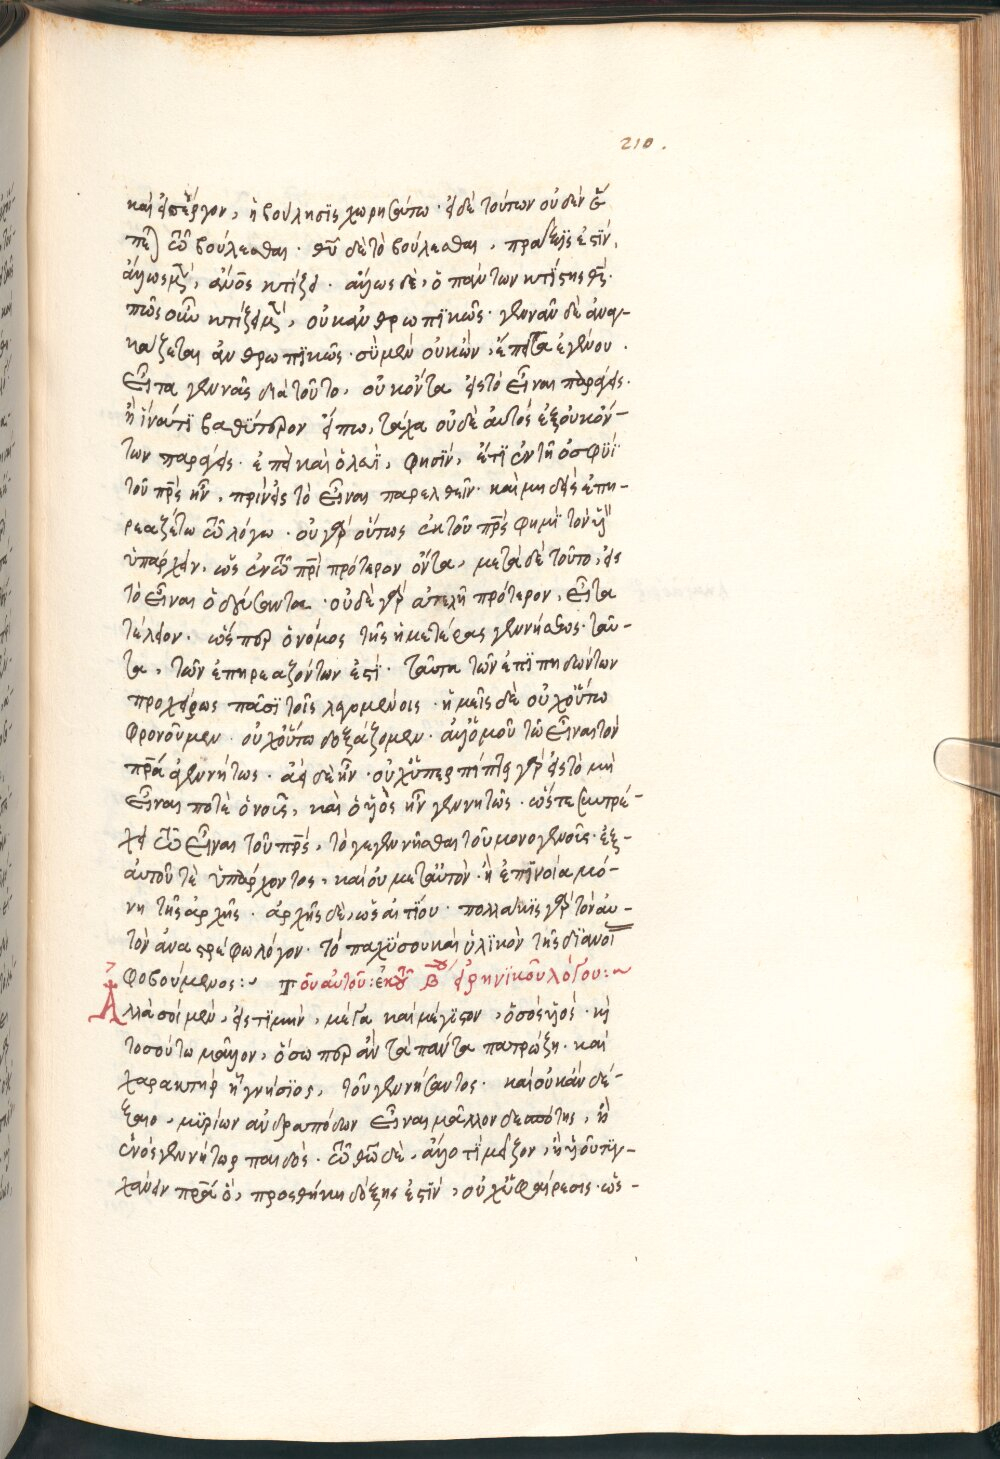 210.
καὶ εἰς ἔργον, ἡ βούλησις χωρησάτω· εἰ δὲ τούτων οὐδὲν
τῷ βούλεσθαι· θεοῦ δὲ τὸ βούλεσθαι, πρᾶξις ἐστὶν,
ἄλλως μὲν, ἄνος κτίζει· ἄλλως δὲ, ὁ πάντων κτίστης θς·
πῶς οὖν κτίζει μὲν, οὐκ ἀνθρωπικῶς· γεννᾶν δὲ ἀναγ-
κάζεται ἀνθρωπικῶς· σὺ μὲν οὐκ ὢν, ἔπειτα ἐγένου·
εἶτα γεννᾷς διατοῦτο, οὐκ ὄντα εἰς τὸ εἶναι παράγεις·
ἢ ἵνα τὶ βαθύτερον εἴπω, τάχα οὐδὲ αὐτὸς ἐξ οὐκ ὄν-
των παράγεις· ἐπεὶ καὶ ὁ λευὶ, φησὶν, ἔτι ἐν τῇ ὀσφύϊ
τοῦ πρς ἦν, πρὶν εἰς τὸ εἶναι παρελθεῖν· καὶ μηδεὶς ἐπη-
ρεαζέτω τῷ λόγω· οὐ γὰρ οὕτως ἐκ τοῦ πρς φημὶ τὸν υν
ὑπάρχειν, ὡς ἐν τῷ πρι πρότερον ὄντα, μετὰ δὲ τοῦτο, εἰς
τὸ εἶναι ὁδεύσαντα· οὐδὲ γὰρ ἀτελῆ πρότερον, εἶτα
τέλειον· ὥσπερ ὁ νόμος τῆς ἡμετέρας γεννήσεως· ταῦ-
τα, τῶν ἐπηρεαζόντων ἐστί· ταῦτα τῶν ἐπιπηδώντων
προχείρως πᾶσι τοῖς λεγομένοις· ἡμεῖς δὲ οὐχ οὕτω
φρονοῦμεν· οὐχ οὕτω δοξάζομεν· ἀλλ' ὁμοῦ τῶ εἶναι τὸν
πρα ἀγεννήτως· ἀεὶ δὲ ἦν· οὐ χ' ὑπερπίπτει γὰρ εἰς τὸ μὴ
εἶναι ποτὲ ὁ νοῦς, καὶ ὁ υἱὸς ἦν γεννητῶς· ὥστε συντρέ-
χει τῷ εἶναι τοῦ πρς, τὸ γεγεννῆσθαι τοῦ μονογενοῦς· ἐξ
αὐτοῦ τὲ ὑπάρχοντος, καὶ οὐ μετ' αὐτὸν· ἢ ἐπινοία μό-
νη τῆς ἀρχῆς· ἀρχῆς δὲ, ὡς αἰτίου· πολλακις γὰρ τὸν αυ-
τὸν ἀναστρέφω λόγον· τὸ παχὺ σου καὶ ὑλικὸν τῆς διανοι
φοβούμενος:- Τοῦ αὐτοῦ: ἐκ τοῦ β εἰρηνικοῦ λόγου:~
Ἀλλὰ σοὶ μὲν, εἰς τιμὴν, μέγα καὶ μέγιστον, ὅσος υἱὸς· κὴ
τοσούτω μᾶλλον, ὅσω περ ἂν τὰ πάντα πατρώζη· καὶ
χαρακτὴρ ᾖ γνήσιος, τοῦ γεννήσαντος· καὶ οὐκ ἂν δέ-
ξαιο, μυρίων ἀνδραπόδων εἶναι μᾶλλον δεσπότης, ἢ
ἑνὸς γεννήτωρ παιδὸς· τῷ θῶ δὲ, ἆρ' ἀτιμάζον, ἢ υἱοῦ τυγ-
χάνειν πρα ὃ, προσθήκη δόξης ἐστὶν, οὐχ ὑφαίρεσις· ὡς-